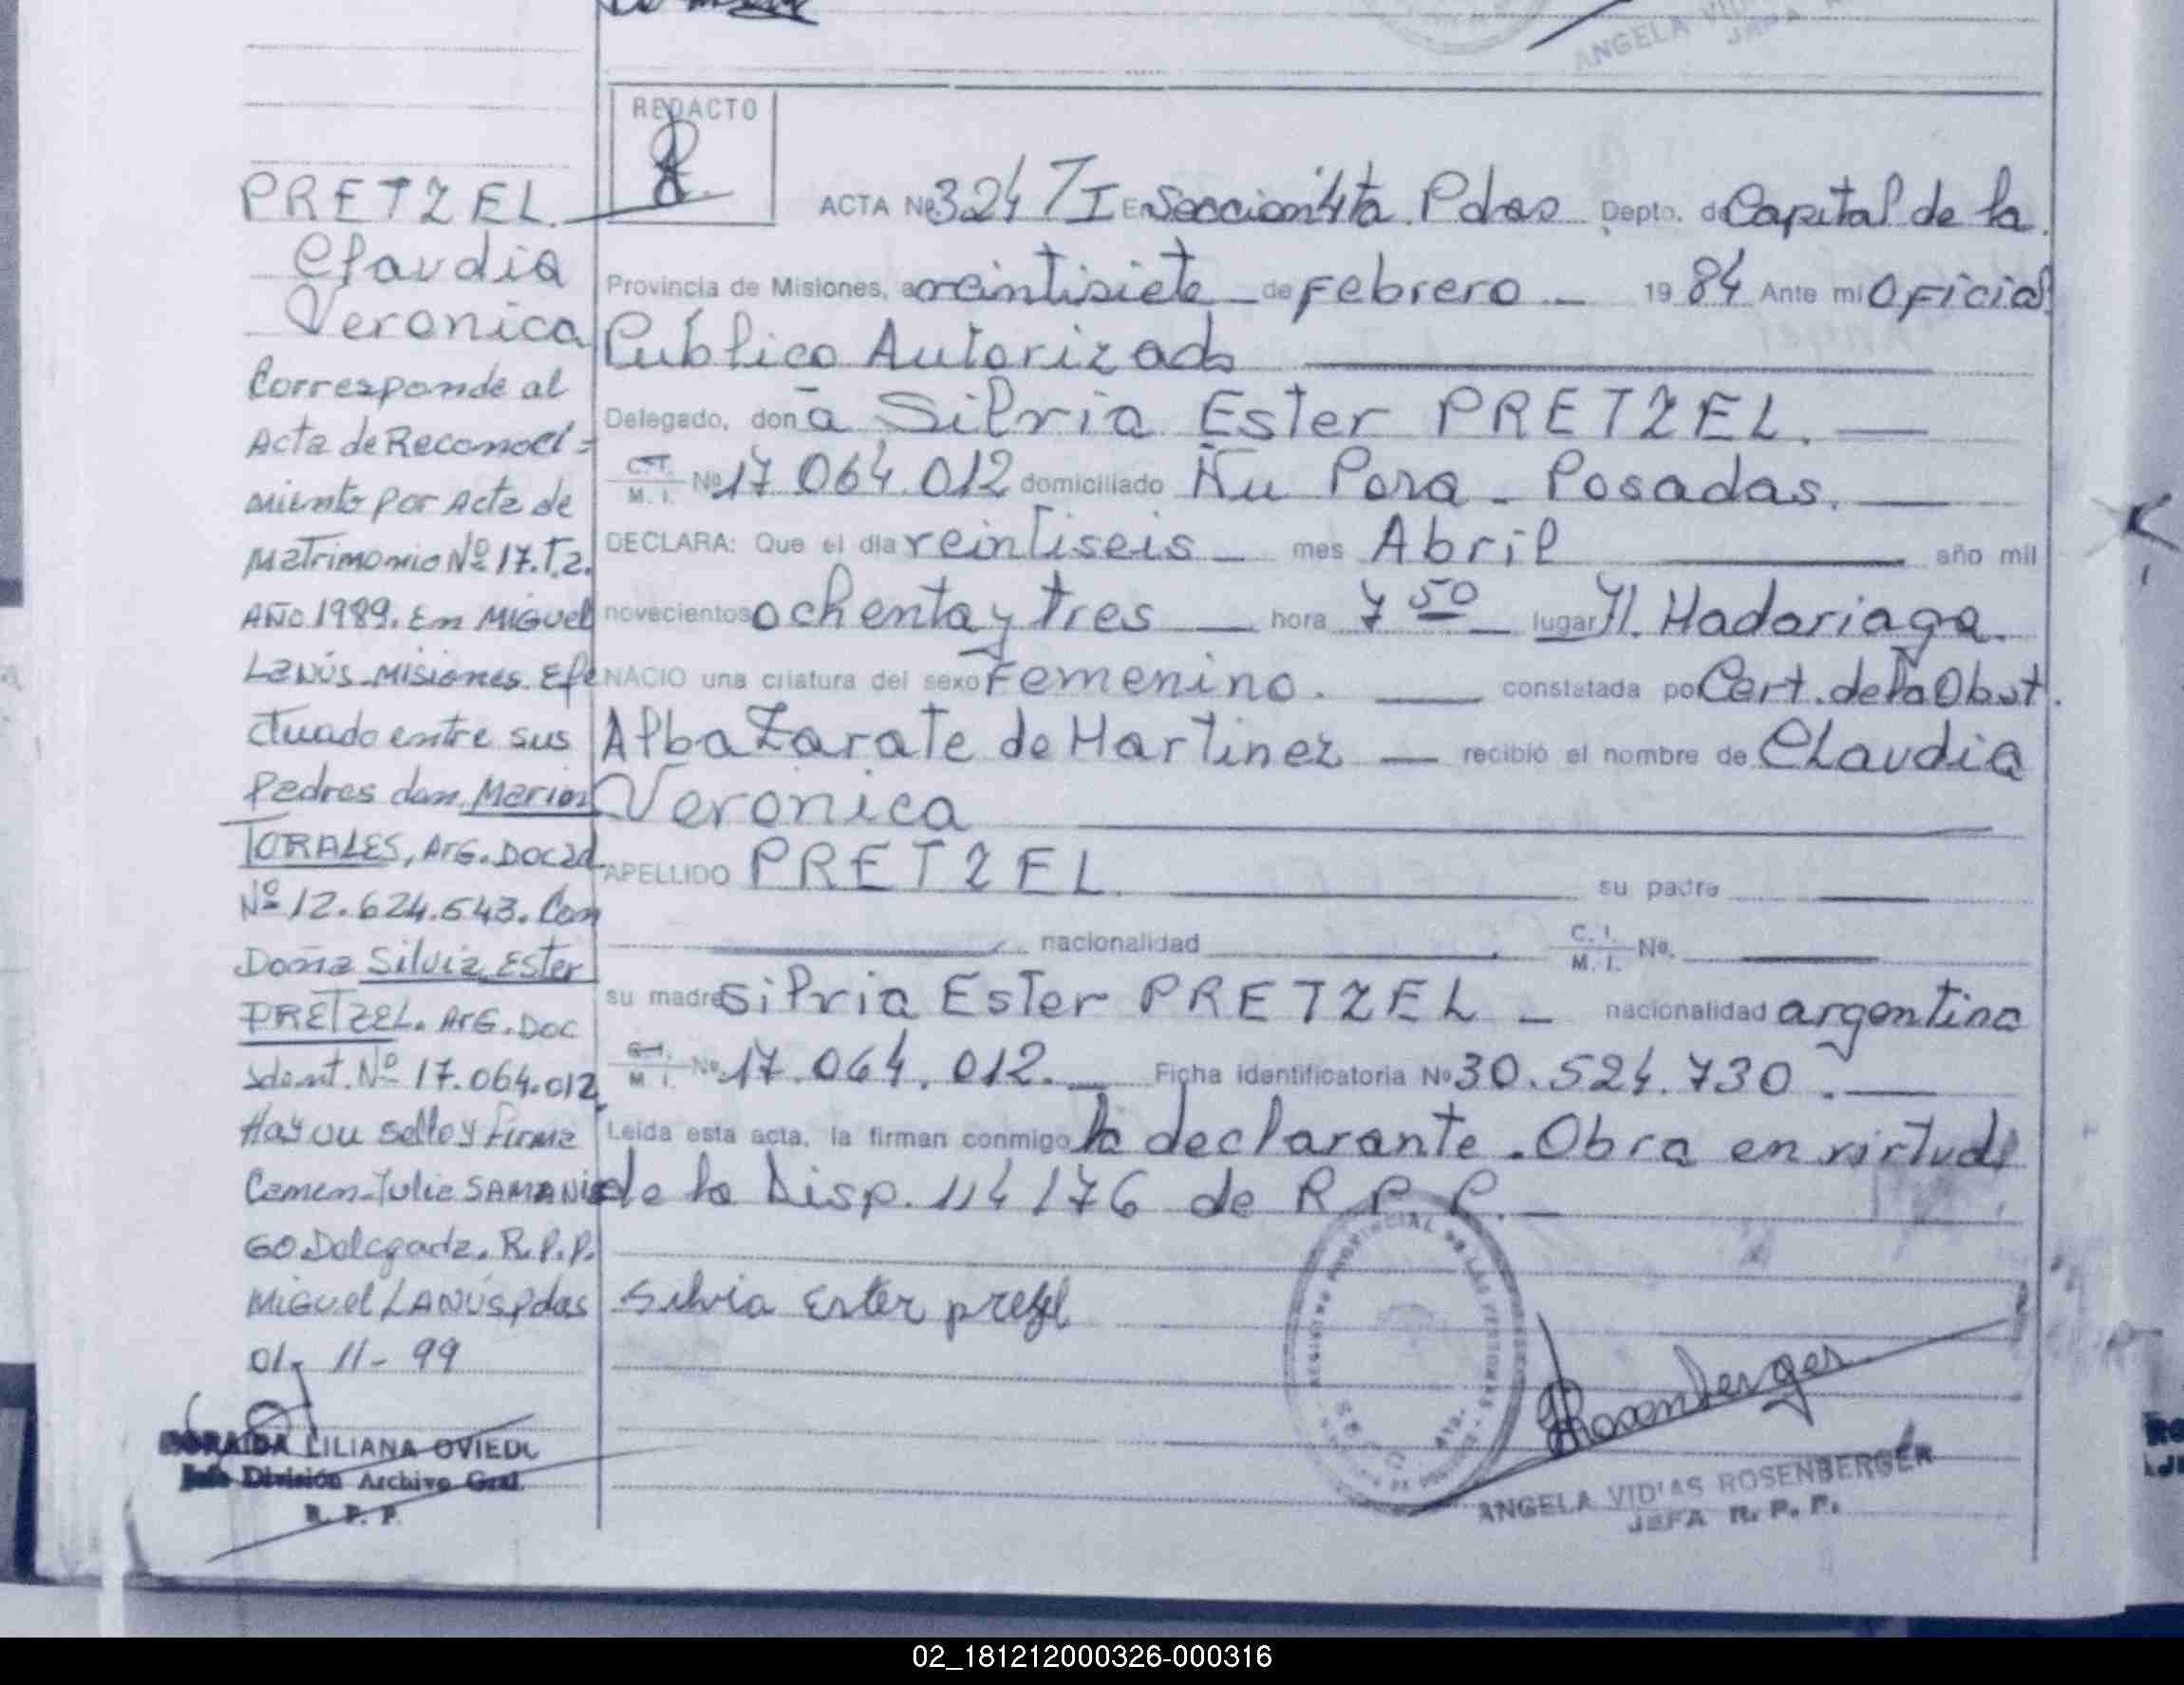 ANGELA VID
REDACTO
ACTA Nº 324 T I En Sección 4ta Pdas Depto. de Capital de la
Provincia de Misiones, a veintisiete de Febrero 1984 Ante mi Oficial
Público Autorizado
Delegado, don a Silvia Ester PRETZEL.
C.I. M. I. Nº 17.064.012 domiciliado Ñu Pora - Posadas.
DECLARA: Que el día veintiseis mes Abril año mil
novecientos ochenta y tres hora 7 50 lugar H. Madariaga.
NACIO una criatura del sexo Femenino. constatada po Cert. de la Obst.
Alba Zarate de Martinez recibió el nombre de Claudia
Veronica
APELLIDO PRETZEL su padre
nacionalidad C. I. M. I. Nº.
su madre Silvia Ester PRETZEL nacionalidad argentina
M. I. Nº 17.064.012. Ficha identificatoria Nº 30.524.730.
Leída esta acta, la firman conmigo la declarante. Obra en virtud
de la Disp. 114/76 de R.P.P.
Silvia Ester pretzel
Rosenberger
ANGELA VIDIAS ROSENBERGER
JEFA R. P. P.
PRETZEL
Claudia
Veronica
Corresponde al
Acta de Reconoci=
miento por Acta de
Matrimonio Nº 17.T.2.
AÑO 1989. En Miguel
Lanús Misiones. Efe
ctuado entre sus
Padres don Marion
TORALES, Arg. Doc. Id.
Nº 12.624.543. Con
Doña Silvia Ester
PRETZEL. Arg. Doc
Ident. Nº 17.064.012
Hay un sello y firma
Camen Julia SAMANIE
GO Delegada. R.P.P.
Miguel LANÚS Pdas
01-11-99
LILIANA OVIEDO
Jefe División Archivo Gral.
R. P. P.
02_181212000326-000316